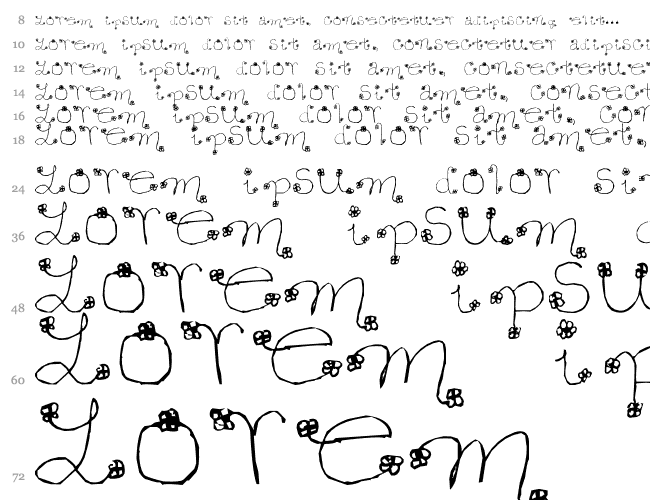 8 Lorem ipsum dolor sit amet, consectetuer adipiscing elit...
10 Lorem ipsum dolor sit amet, consectetuer adipisci
12 Lorem ipsum dolor sit amet, consectetuer
14 Lorem ipsum dolor sit amet, consect
16 Lorem ipsum dolor sit amet, con
18 Lorem ipsum dolor sit amet,
24 Lorem ipsum dolor si
36 Lorem ipsum
48 Lorem ipsu
60 Lorem ip
72 Lorem